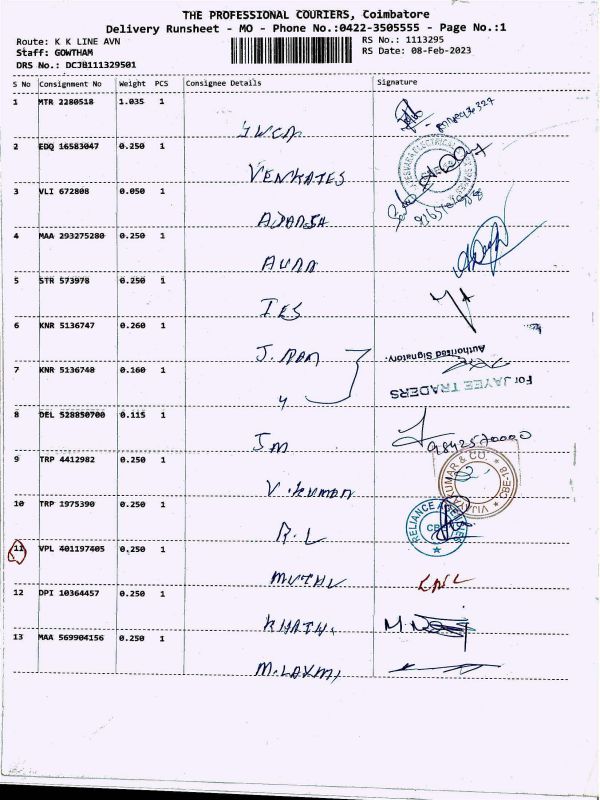 THE PROFESSIONAL COURIERS, Coimbatore
Delivery Runsheet - MO - Phone No.:0422-3505555 - Page No.:1
Route: K K LINE AVN
RS No.: 1113295
Staff: GOWTHAM
RS Date: 08-Feb-2023
DRS No.: DCJB111329501
S No Consignment No Weight PCS Consignee Details Signature
1 MTR 2280518 1.035 1
YWCA
2 EDQ 16583047 0.250 1
VENKATES
3 VLI 672808 0.050 1
4 MAA 293275280 0.250 1
5 STR 573978 0.250 1
IES
6 KNR 5136747 0.260 1
J. RAM
Authorised Signatory.
7 KNR 5136740 0.160 1
For JAYEE TRADERS
8 DEL 528850700 0.115 1
JM
9842570000
9 TRP 4412982 0.250 1
V. KUMAR
VIJAYKUMAR & CO. CBE-18
10 TRP 1975390 0.250 1
R. L
RELIANCE
11 VPL 401197405 0.250 1
MUTHU
12 DPI 10364457 0.250 1
KHATH.
13 MAA 569904156 0.250 1
M. LAXMI